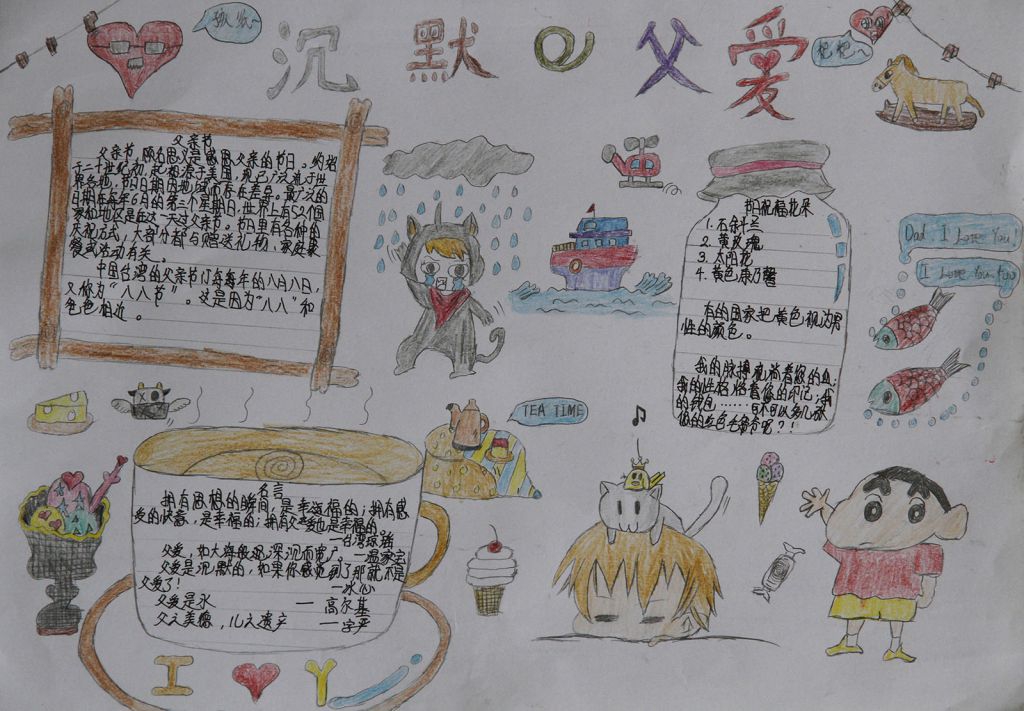 沉默の父爱
爸爸~
父亲节
父亲节，顾名思义是感恩父亲的节日。约始
于二十世纪初，起源于美国，现已广泛流传于世
界各地，节日日期因地域而存在差异。最广泛的
日期在每年6月的第三个星期日，世界上有52个国
家和地区是在这一天过父亲节。节日里有各种的
庆祝方式，大部分都与赠送礼物、家庭聚
餐或活动有关。
中国台湾的父亲节订每每年的八月八日，
又称为“八八节”。这是因为“八八”和
爸爸相近。
节日祝福花朵
1.石斛兰
2.黄玫瑰
3.太阳花
4.黄色康乃馨
有的国家把黄色视为男
性的颜色。
我的脉搏流淌着您的血；
我的性格烙着您的印记；我
的钱包……可不可以多几张
您的红色毛爷爷呢？！
Dad I Love You!
I Love You too
TEA TIME
名言
拥有思想的瞬间，是幸福的；拥有感
受的快意，是幸福的；拥有父爱也是幸福的。
父爱，如大海般深沉而宽广。
父爱是沉默的，如果你感觉到了那就不是
父爱了！ —冰心
父爱是水 —高尔基
I Y